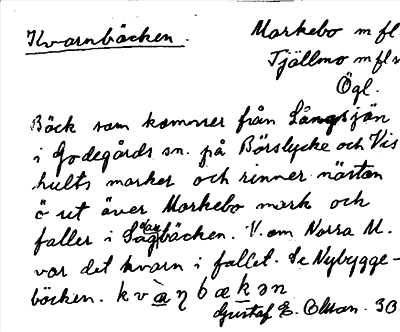 Kvarnbäcken. Markebo m fl.
Tjällmo m fl s
Ögl.
Bäck som kommer från Långsjön
i Godegårds sn. på Börslycke och Vis
hults marker och rinner nästan
ö ut över Markebo mark och
faller i Sågbäcken. V. om Norra M.
var det kvarn i fallet. Se Nybygge-
bäcken. k v à ŋ b æ k ə n
Gustaf E. Olson. 30